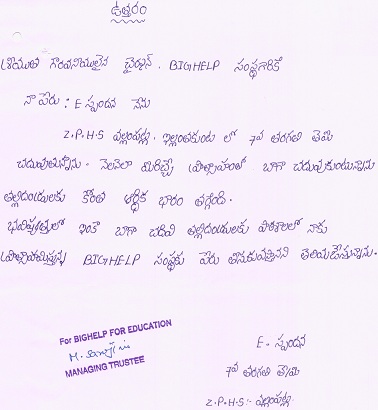 ఉత్తరం
శ్రీయుత గౌరవనీయులైన చైర్మన్. BIGHELP సంస్థగారికి
నా పేరు : E స్పందన నేను
Z.P.H.S వల్లంపట్ల. ఇల్లంతకుంట లో 7వ తరగతి
చదువుతున్నాను. నెలనెలా మీరిచ్చే ప్రోత్సాహంతో బాగా చదువుకుంటున్నాను
తల్లిదండ్రులకు కొంత ఆర్థిక భారం తగ్గింది.
భవిష్యత్తులో ఇంకా బాగా చదివి తల్లిదండ్రులకు పాఠశాలలో నాకు
ప్రోత్సాహమిస్తున్న BIGHELP సంస్థకు పేరు తీసుకువస్తానని తెలియచేస్తున్నాను.
For BIGHELP FOR EDUCATION
MANAGING TRUSTEE
E. స్పందన
7వ తరగతి
Z.P.H.S :- వల్లంపట్ల